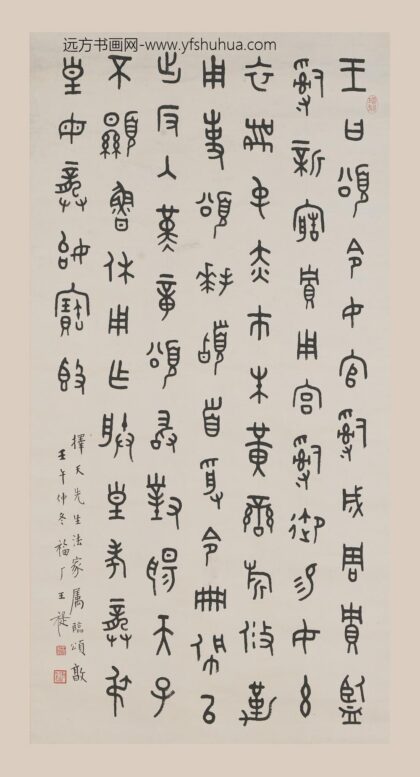 远方书画网-www.yfshuhua.com
王曰頌令女官𤔲成周貯監
𤔲新寤貯用宮𤔲御易女玄
衣黹屯赤巿朱黃䜌旂攸勒
用事頌拜𩒨首受令冊佩以
出反入堇章頌敢對揚天子
不顯魯休用乍朕皇考龏弔
皇母龏姒寶𣪘
擇天先生法家属臨頌敦
壬午仲冬福厂王禔